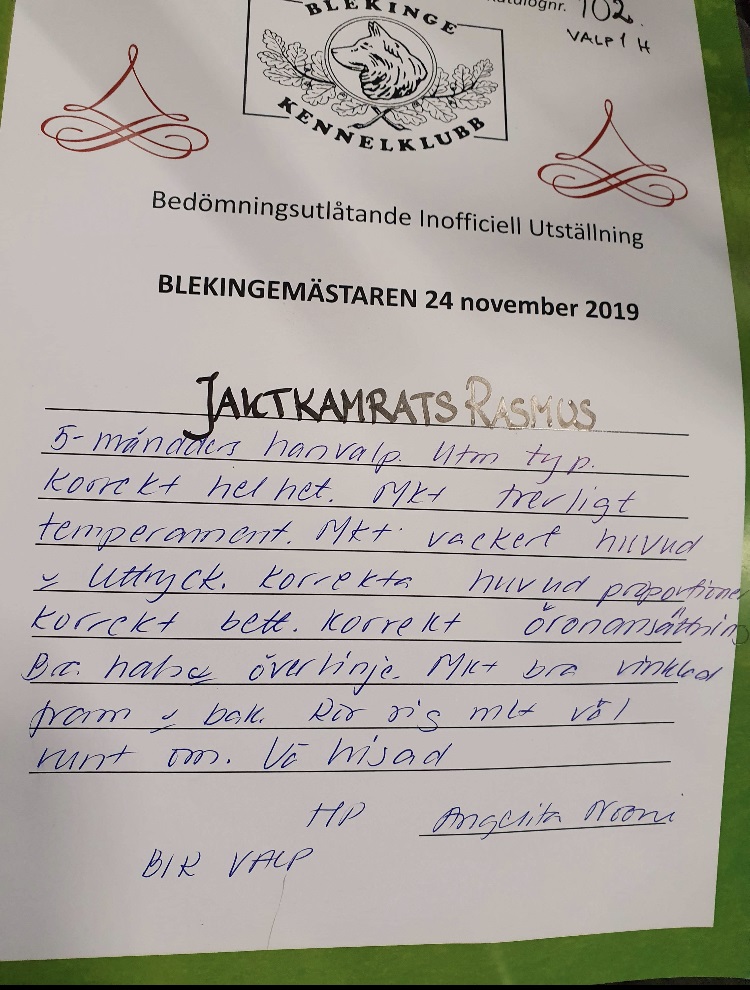 Katalognr. 102.
VALP 1 H
BLEKINGE
KENNELKLUBB
Bedömningsutlåtande Inofficiell Utställning
BLEKINGEMÄSTAREN 24 november 2019
JAKTKAMRATS RASMUS
5-månaders hanvalp. Utm typ.
Korrekt helhet. Mkt trevligt
temperament. Mkt vackert huvud
& Uttryck. Korrekta huvud proportioner
Korrekt bett. Korrekt öronansättning
Bra hals & överlinje. Mkt bra vinklad
fram & bak. Rör sig mkt väl
runt om. Vä visad
HP Angelita
BIR VALP